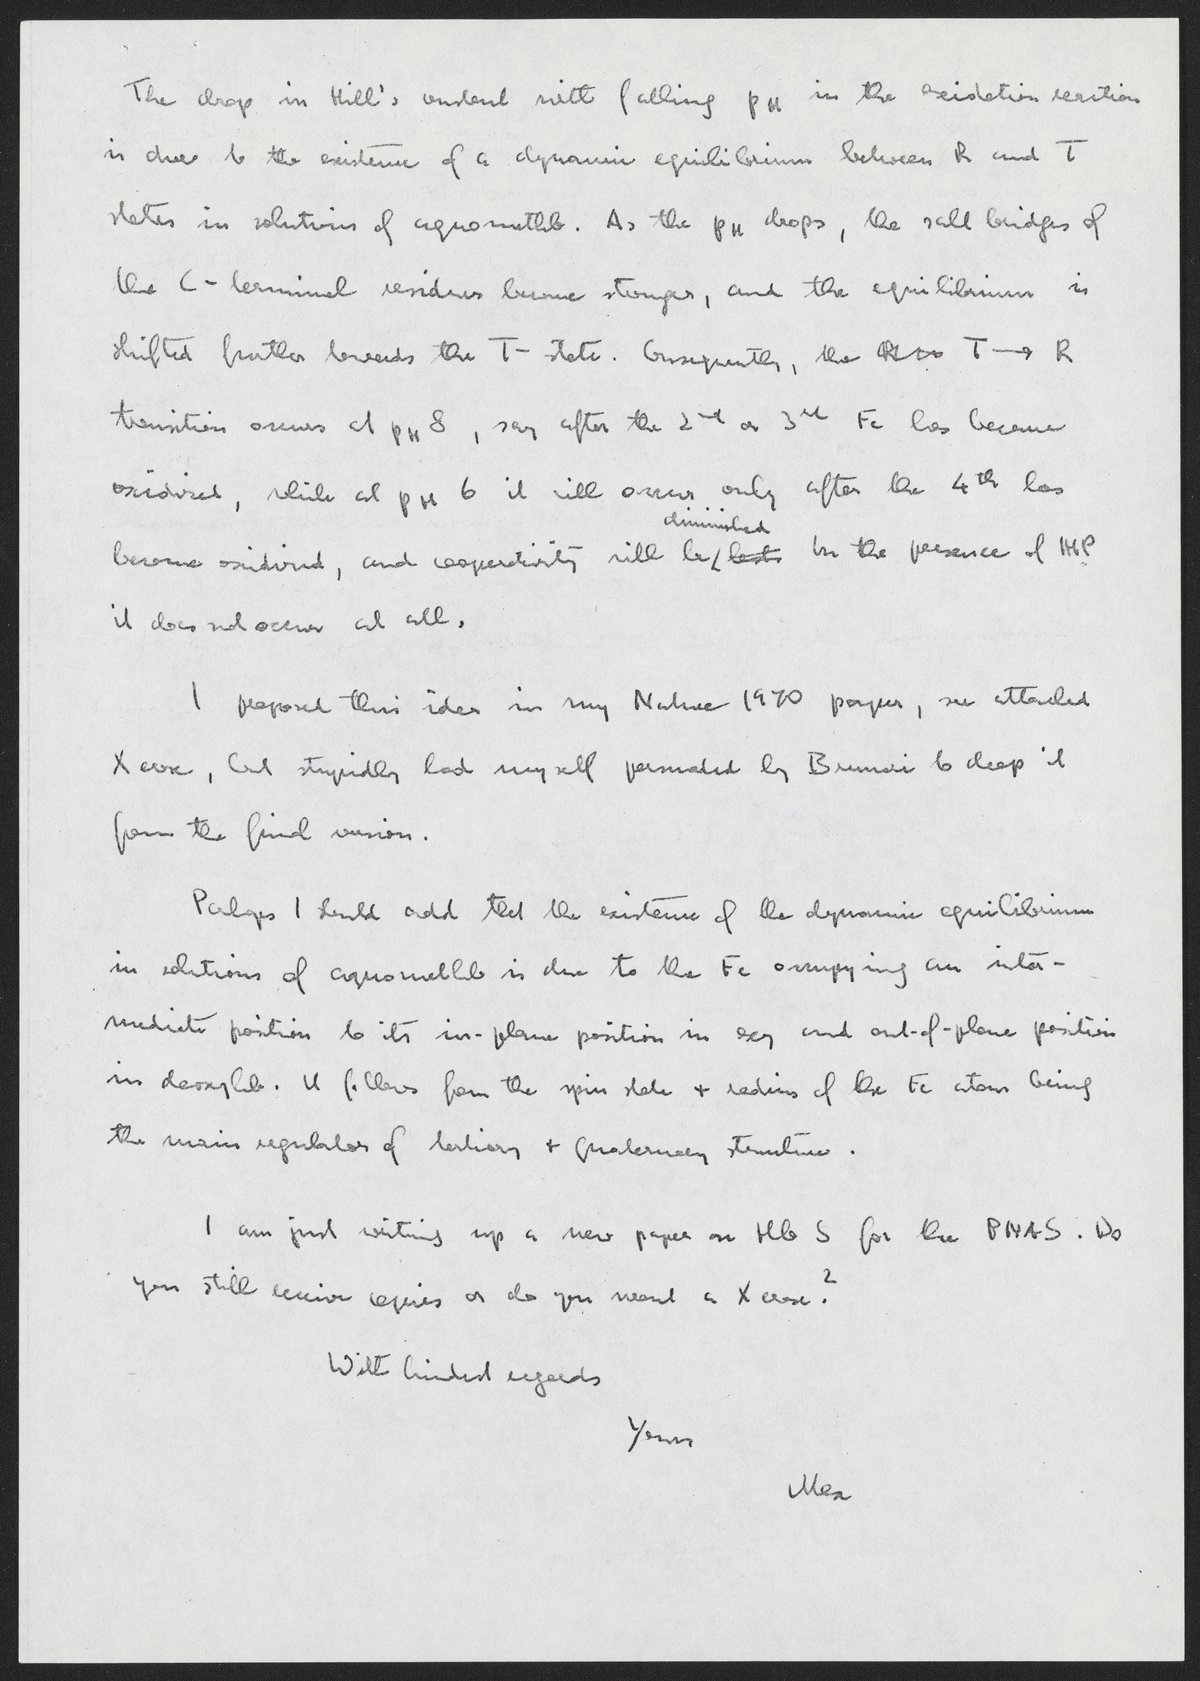 The drop in Hill's constant with falling pH in the oxidation reaction
is due to the existence of a dynamic equilibrium between R and T
states in solutions of aquometHb. As the pH drops, the salt bridges of
the C-terminal residues become stronger, and the equilibrium is
shifted further towards the T-state. Consequently, the T → R
transition occurs at pH 8, say after the 2nd or 3rd Fe has become
oxidised, while at pH 6 it will occur only after the 4th has
diminished
become oxidised, and cooperativity will be lost. In the presence of IHP
it does not occur at all.
I proposed this idea in my Nature 1970 paper, see attached
Xerox, but stupidly had myself persuaded by Brunori to drop it
from the final version.
Perhaps I should add that the existence of the dynamic equilibrium
in solutions of aquometHb is due to the Fe occupying an inter-
mediate position to its in-plane position in oxy and out-of-plane position
in deoxyHb. It follows from the spin state + radius of the Fe atoms being
the main regulator of tertiary + quaternary structure.
I am just writing up a new paper on Hb S for the PNAS. Do
you still receive copies or do you want a Xerox?
With kindest regards
Yours
Max